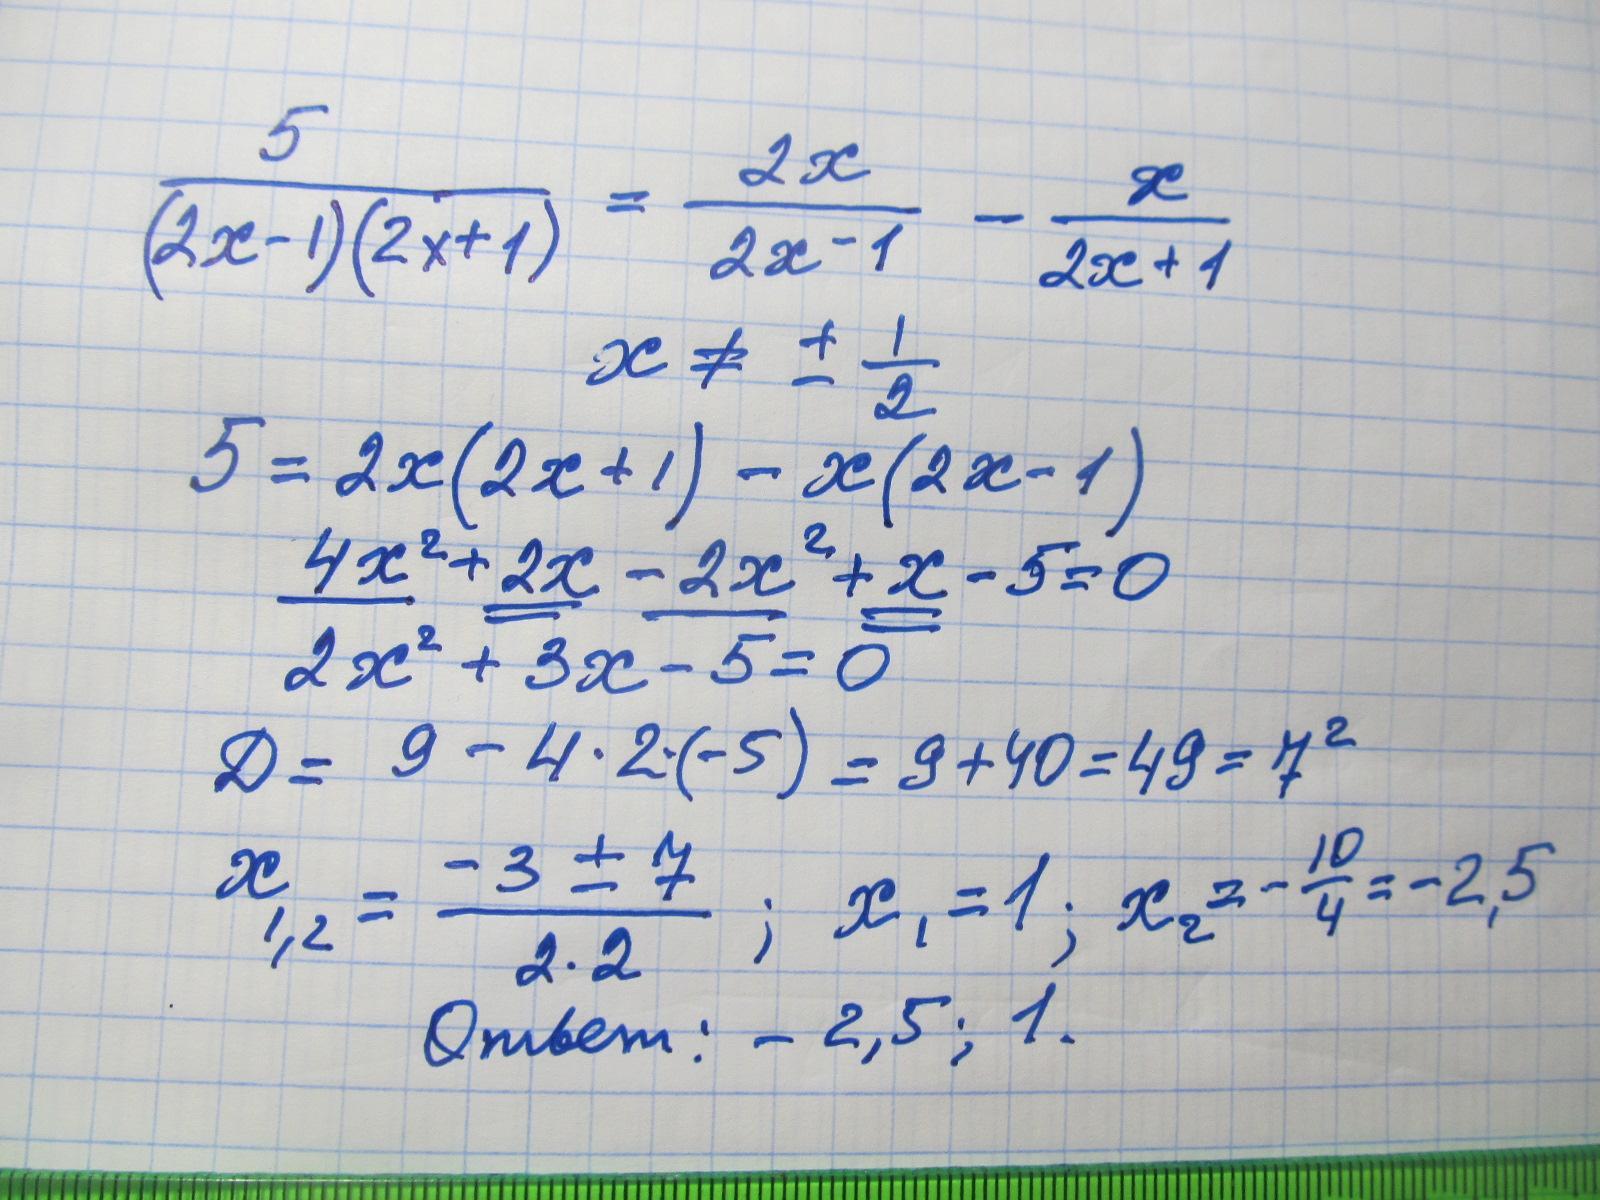 5/((2x-1)(2x+1)) = 2x/(2x-1) - x/(2x+1)
x ≠ ± 1/2
5 = 2x(2x+1) - x(2x-1)
4x² + 2x - 2x² + x - 5 = 0
2x² + 3x - 5 = 0
D = 9 - 4·2·(-5) = 9 + 40 = 49 = 7²
x₁,₂ = (-3 ± 7)/(2·2) ; x₁ = 1 ; x₂ = -10/4 = -2,5
Ответ: -2,5; 1.